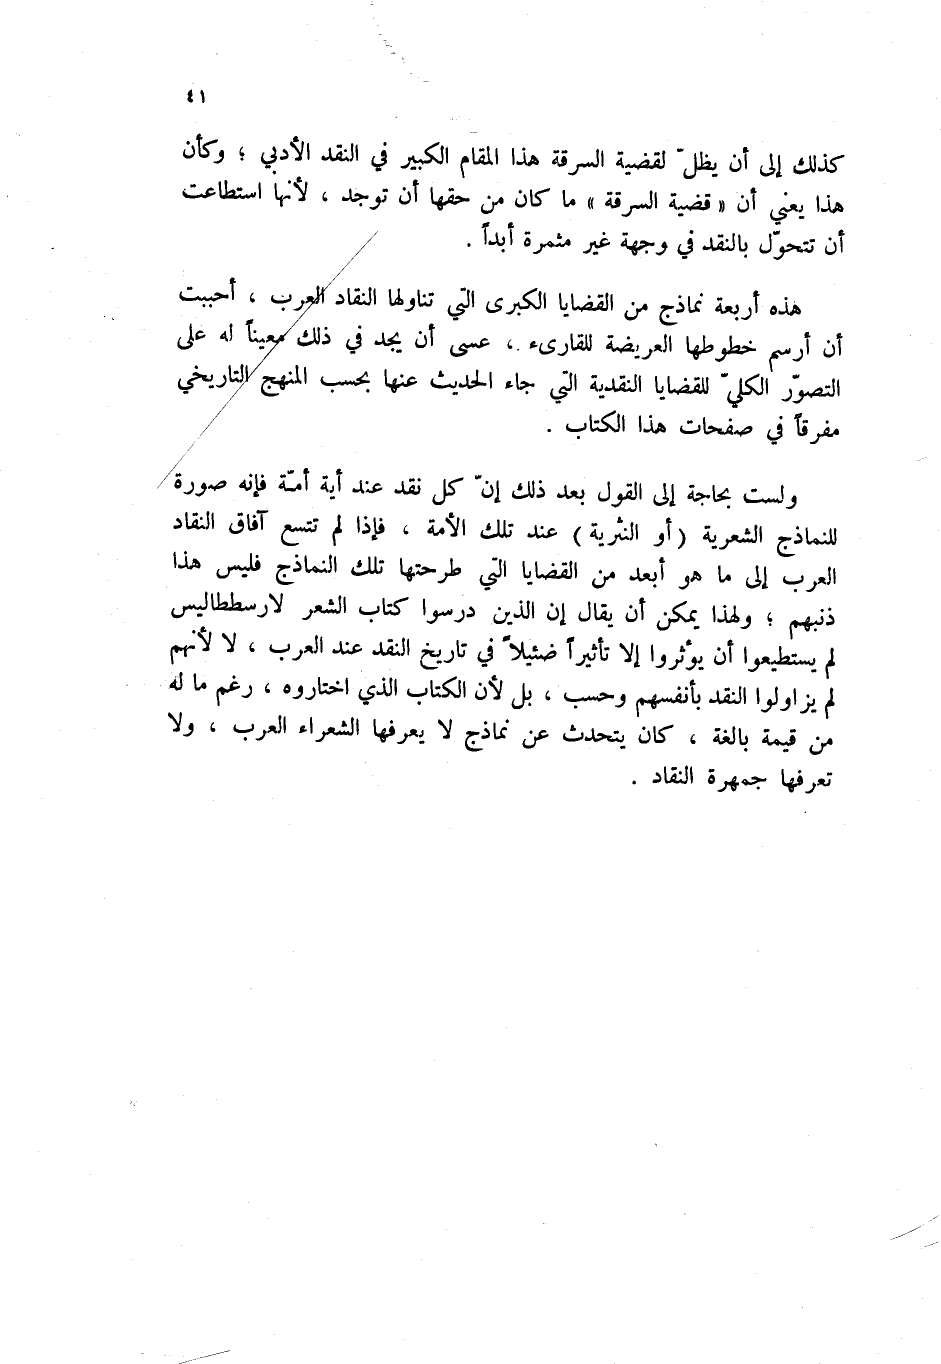 ٤١
كذلك إلى أن يظلّ لقضية السرقة هذا المقام الكبير في النقد الأدبي ؛ وكأن
هذا يعني أن « قضية السرقة » ما كان من حقها أن توجد ، لأنها استطاعت
أن تتحوّل بالنقد في وجهة غير مثمرة أبداً .
هذه أربعة نماذج من القضايا الكبرى التي تناولها النقاد العرب ، أحببت
أن أرسم خطوطها العريضة للقارىء ، عسى أن يجد في ذلك معيناً له على
التصوّر الكليّ للقضايا النقدية التي جاء الحديث عنها بحسب المنهج التاريخي
مفرقاً في صفحات هذا الكتاب .
ولست بحاجة إلى القول بعد ذلك إنّ كل نقد عند أية أمّة فإنه صورة
للنماذج الشعرية ( أو النثرية ) عند تلك الأمة ، فإذا لم تتسع آفاق النقاد
العرب إلى ما هو أبعد من القضايا التي طرحتها تلك النماذج فليس هذا
ذنبهم ؛ ولهذا يمكن أن يقال إن الذين درسوا كتاب الشعر لارسططاليس
لم يستطيعوا أن يؤثروا إلا تأثيراً ضئيلاً في تاريخ النقد عند العرب ، لا لأنهم
لم يزاولوا النقد بأنفسهم وحسب ، بل لأن الكتاب الذي اختاروه ، رغم ما له
من قيمة بالغة ، كان يتحدث عن نماذج لا يعرفها الشعراء العرب ، ولا
تعرفها جمهرة النقاد .